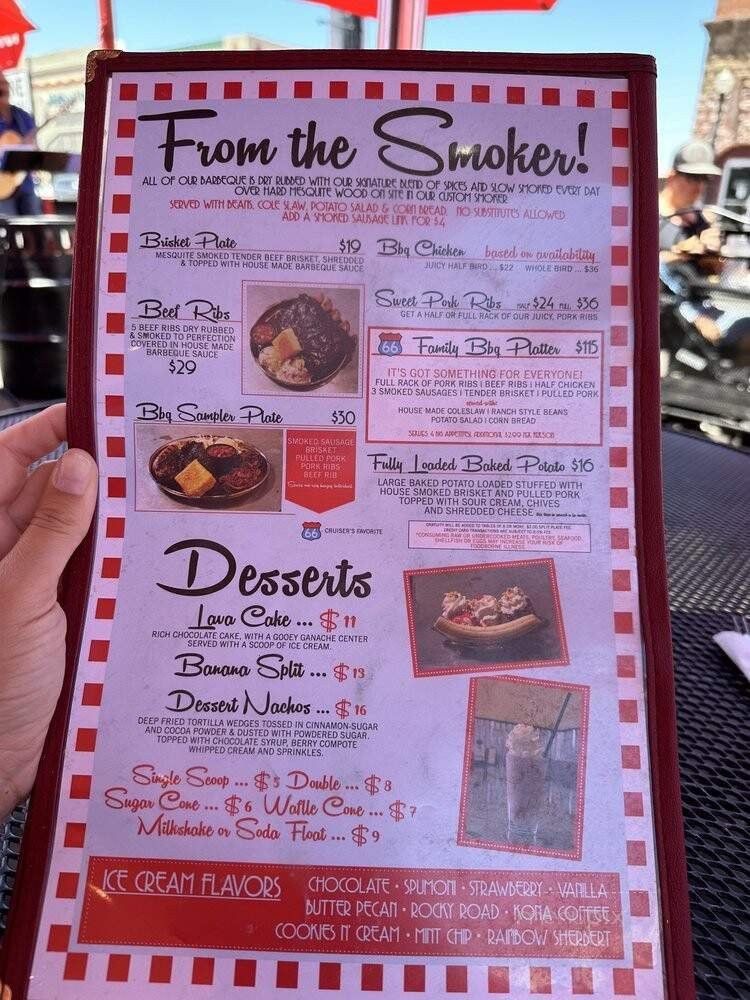 From the Smoker!
ALL OF OUR BARBEQUE IS DRY RUBBED WITH OUR SIGNATURE BLEND OF SPICES AND SLOW SMOKED EVERY DAY
OVER HARD MESQUITE WOOD ON SITE IN OUR CUSTOM SMOKER
SERVED WITH BEANS, COLE SLAW, POTATO SALAD & CORN BREAD. NO SUBSTITUTES ALLOWED
ADD A SMOKED SAUSAGE LINK FOR $4
Brisket Plate $19
MESQUITE SMOKED TENDER BEEF BRISKET, SHREDDED
& TOPPED WITH HOUSE MADE BARBEQUE SAUCE
Beef Ribs
5 BEEF RIBS DRY RUBBED
& SMOKED TO PERFECTION
COVERED IN HOUSE MADE
BARBEQUE SAUCE
$29
Bbq Sampler Plate $30
SMOKED SAUSAGE
BRISKET
PULLED PORK
PORK RIBS
BEEF RIB
66 CRUISER'S FAVORITE
Bbq Chicken based on availability
JUICY HALF BIRD ... $22 WHOLE BIRD ... $36
Sweet Pork Ribs HALF $24 FULL $36
GET A HALF OR FULL RACK OF OUR JUICY, PORK RIBS
66 Family Bbq Platter $115
IT'S GOT SOMETHING FOR EVERYONE!
FULL RACK OF PORK RIBS | BEEF RIBS | HALF CHICKEN
3 SMOKED SAUSAGES | TENDER BRISKET | PULLED PORK
served with:
HOUSE MADE COLESLAW | RANCH STYLE BEANS
POTATO SALAD | CORN BREAD
SERVES 4 BIG APPETITES, ADDITIONAL $2.99 PER PERSON
Fully Loaded Baked Potato $16
LARGE BAKED POTATO LOADED STUFFED WITH
HOUSE SMOKED BRISKET AND PULLED PORK
TOPPED WITH SOUR CREAM, CHIVES
AND SHREDDED CHEESE
GRATUITY WILL BE ADDED TO TABLES OF 8 OR MORE. $2.00 SPLIT PLATE FEE.
*CONSUMING RAW OR UNDERCOOKED MEATS, POULTRY, SEAFOOD,
SHELLFISH OR EGGS MAY INCREASE YOUR RISK OF
FOODBORNE ILLNESS
Desserts
Lava Cake ... $11
RICH CHOCOLATE CAKE, WITH A GOOEY GANACHE CENTER
SERVED WITH A SCOOP OF ICE CREAM.
Banana Split ... $13
Dessert Nachos ... $16
DEEP FRIED TORTILLA WEDGES TOSSED IN CINNAMON-SUGAR
AND COCOA POWDER & DUSTED WITH POWDERED SUGAR.
TOPPED WITH CHOCOLATE SYRUP, BERRY COMPOTE
WHIPPED CREAM AND SPRINKLES.
Single Scoop ... $5 Double ... $8
Sugar Cone ... $6 Waffle Cone ... $7
Milkshake or Soda Float ... $9
ICE CREAM FLAVORS
CHOCOLATE • SPUMONI • STRAWBERRY • VANILLA
BUTTER PECAN • ROCKY ROAD • KONA COFFEE
COOKIES N' CREAM • MINT CHIP • RAINBOW SHERBERT